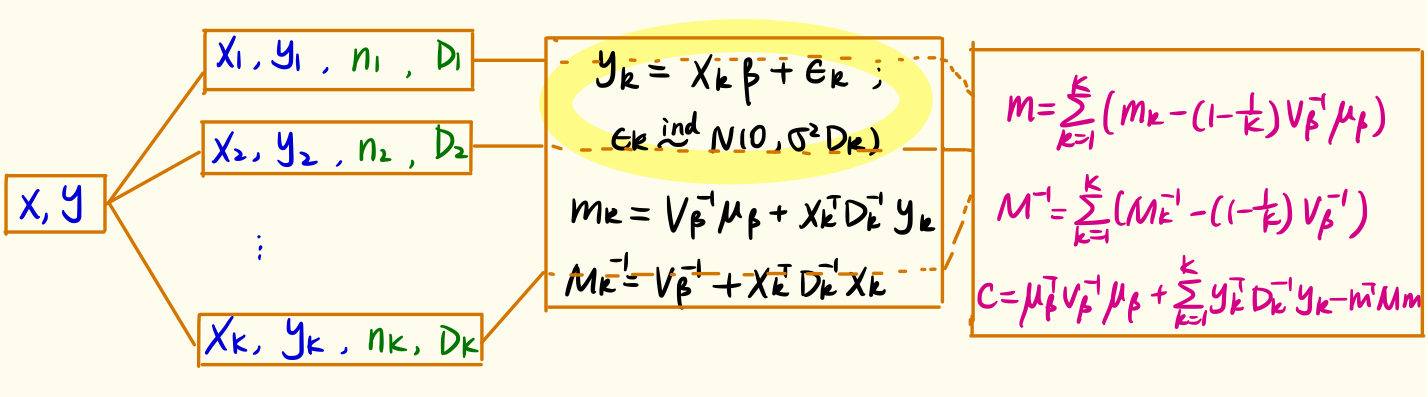 X, y
X₁, y₁, n₁, D₁
X₂, y₂, n₂, D₂
⋮
X_K, y_K, n_K, D_K
y_k = X_k β + ϵ_k ;
ϵ_k ind ~ N(0, σ² D_k)
m_k = V_β⁻¹ μ_β + X_kᵀ D_k⁻¹ y_k
M_k⁻¹ = V_β⁻¹ + X_kᵀ D_k⁻¹ X_k
m = ∑_{k=1}^{K} (m_k − (1 − 1/K) V_β⁻¹ μ_β)
M⁻¹ = ∑_{k=1}^{K} (M_k⁻¹ − (1 − 1/K) V_β⁻¹)
C = μ_βᵀ V_β⁻¹ μ_β + ∑_{k=1}^{K} y_kᵀ D_k⁻¹ y_k − mᵀ M m